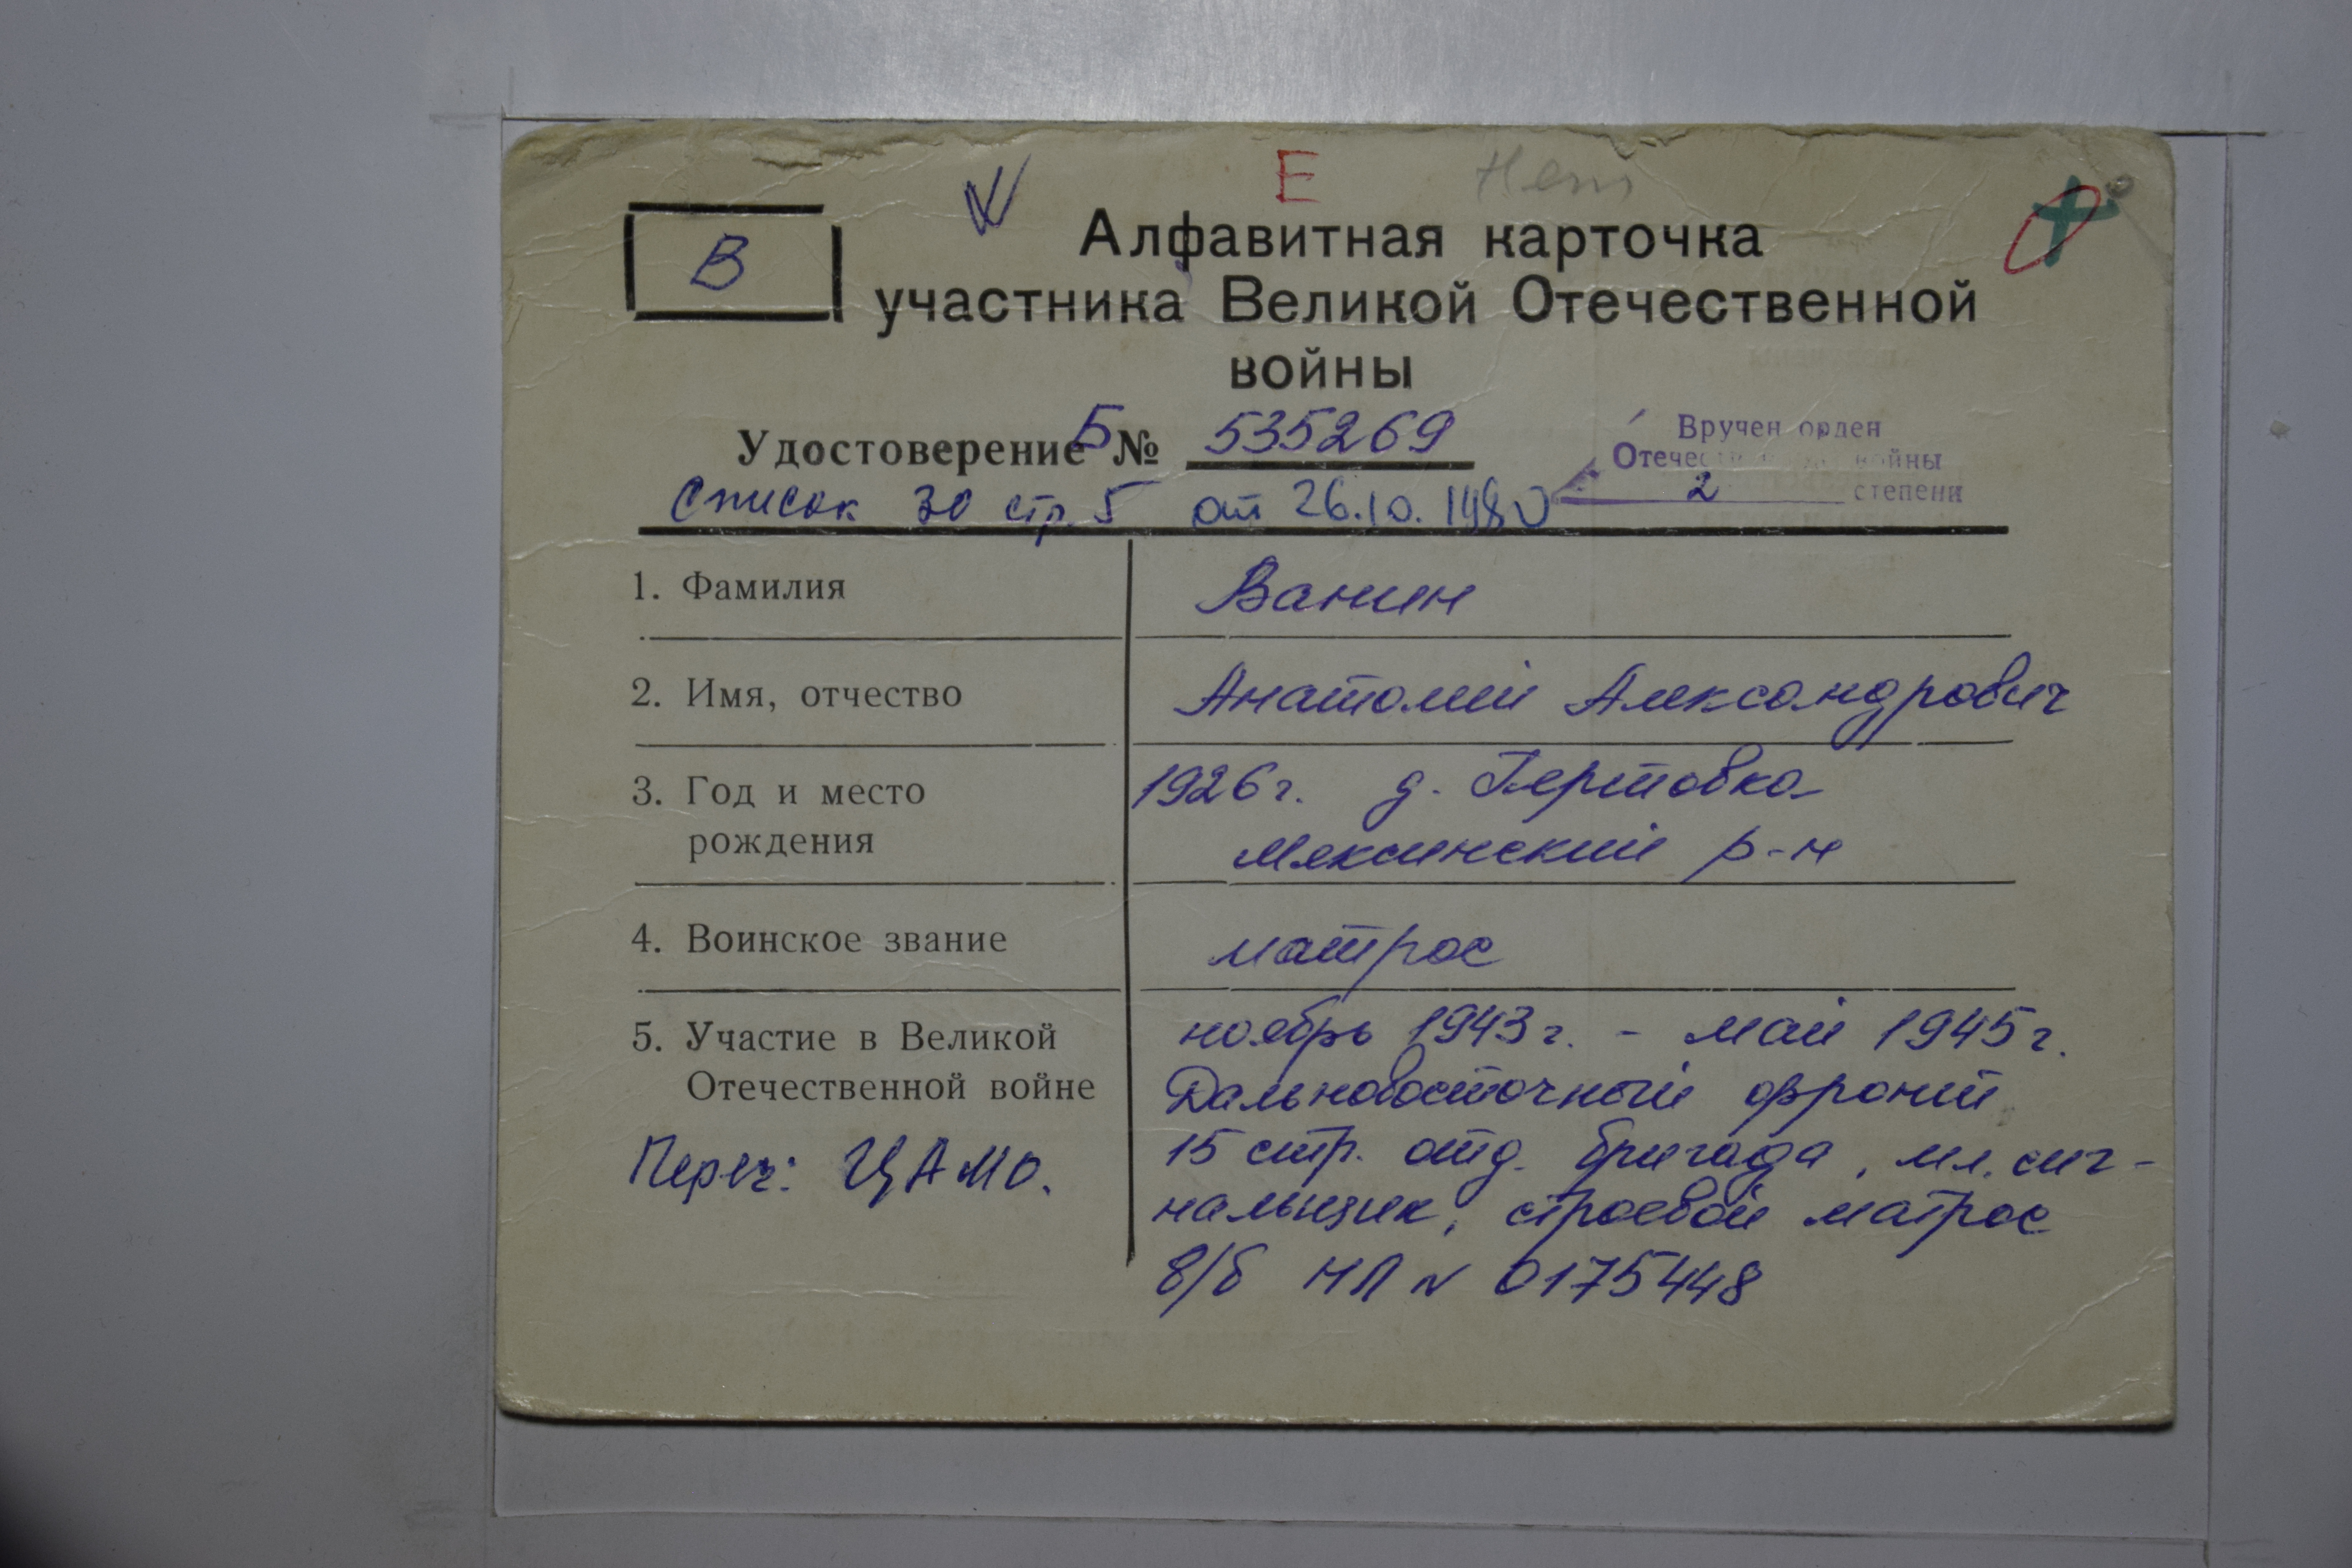 Е Нет
В
Алфавитная карточка
участника Великой Отечественной
войны
Удостоверение Б № 535269
Вручен орден
Отечественной войны
2 степени
Список 30 стр. 5 от 26.10.1980
1. Фамилия Ванин
2. Имя, отчество Анатолий Александрович
3. Год и место 1926г. д.
рождения Мяксинский р-н
4. Воинское звание матрос
5. Участие в Великой ноябрь 1943г. - май 1945г.
Отечественной войне Дальновосточный фронт
15 стр. отд. бригада, мл. сиг-
Переч: ЦАМО. нальщик, строевой матрос
в/б НП № 0175448